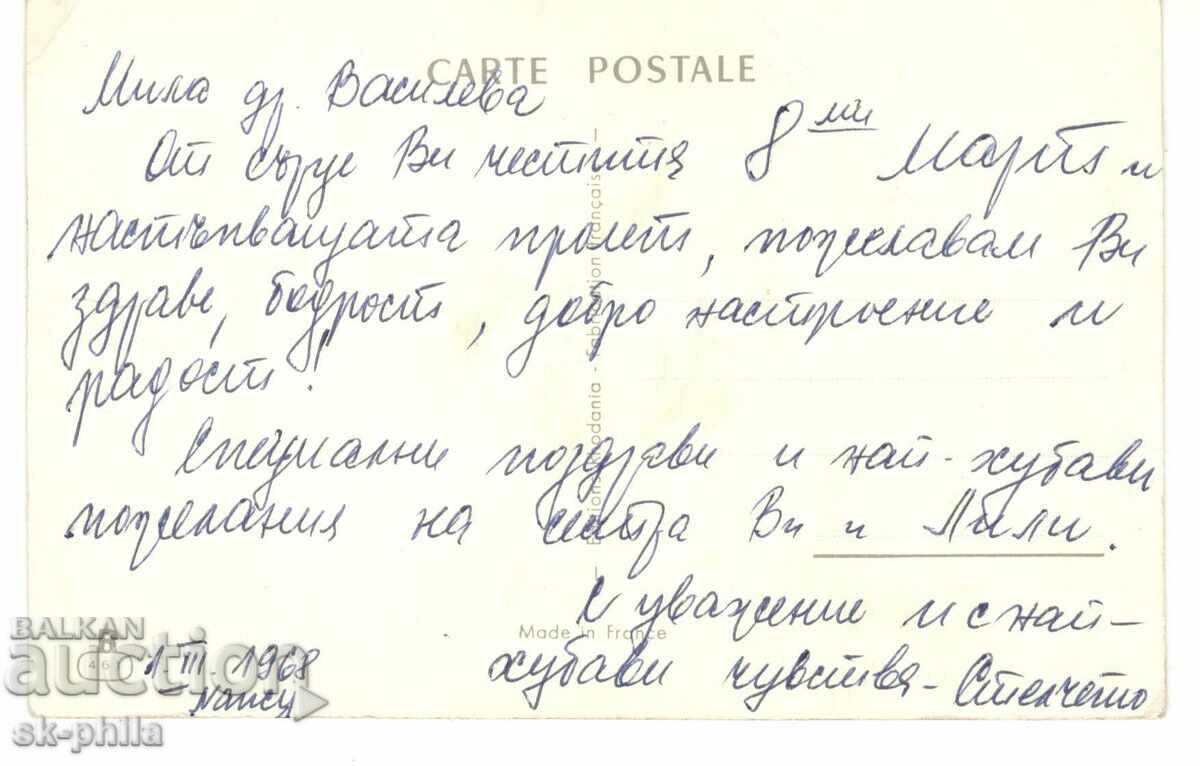 CARTE POSTALE
Мила др. Василева
От сърце Ви честитя 8ми Март и
настъпващата пролет, пожелавам Ви
здраве, бодрост, добро настроение и
радост!
Специални поздрави и най-хубави
пожелания на сестра Ви и Лили.
С уважение и с най-
хубави чувства - Стенчето
1 III 1968
Nancy
Made in France
Fabrication Française
BALKAN
auction
sk-phila